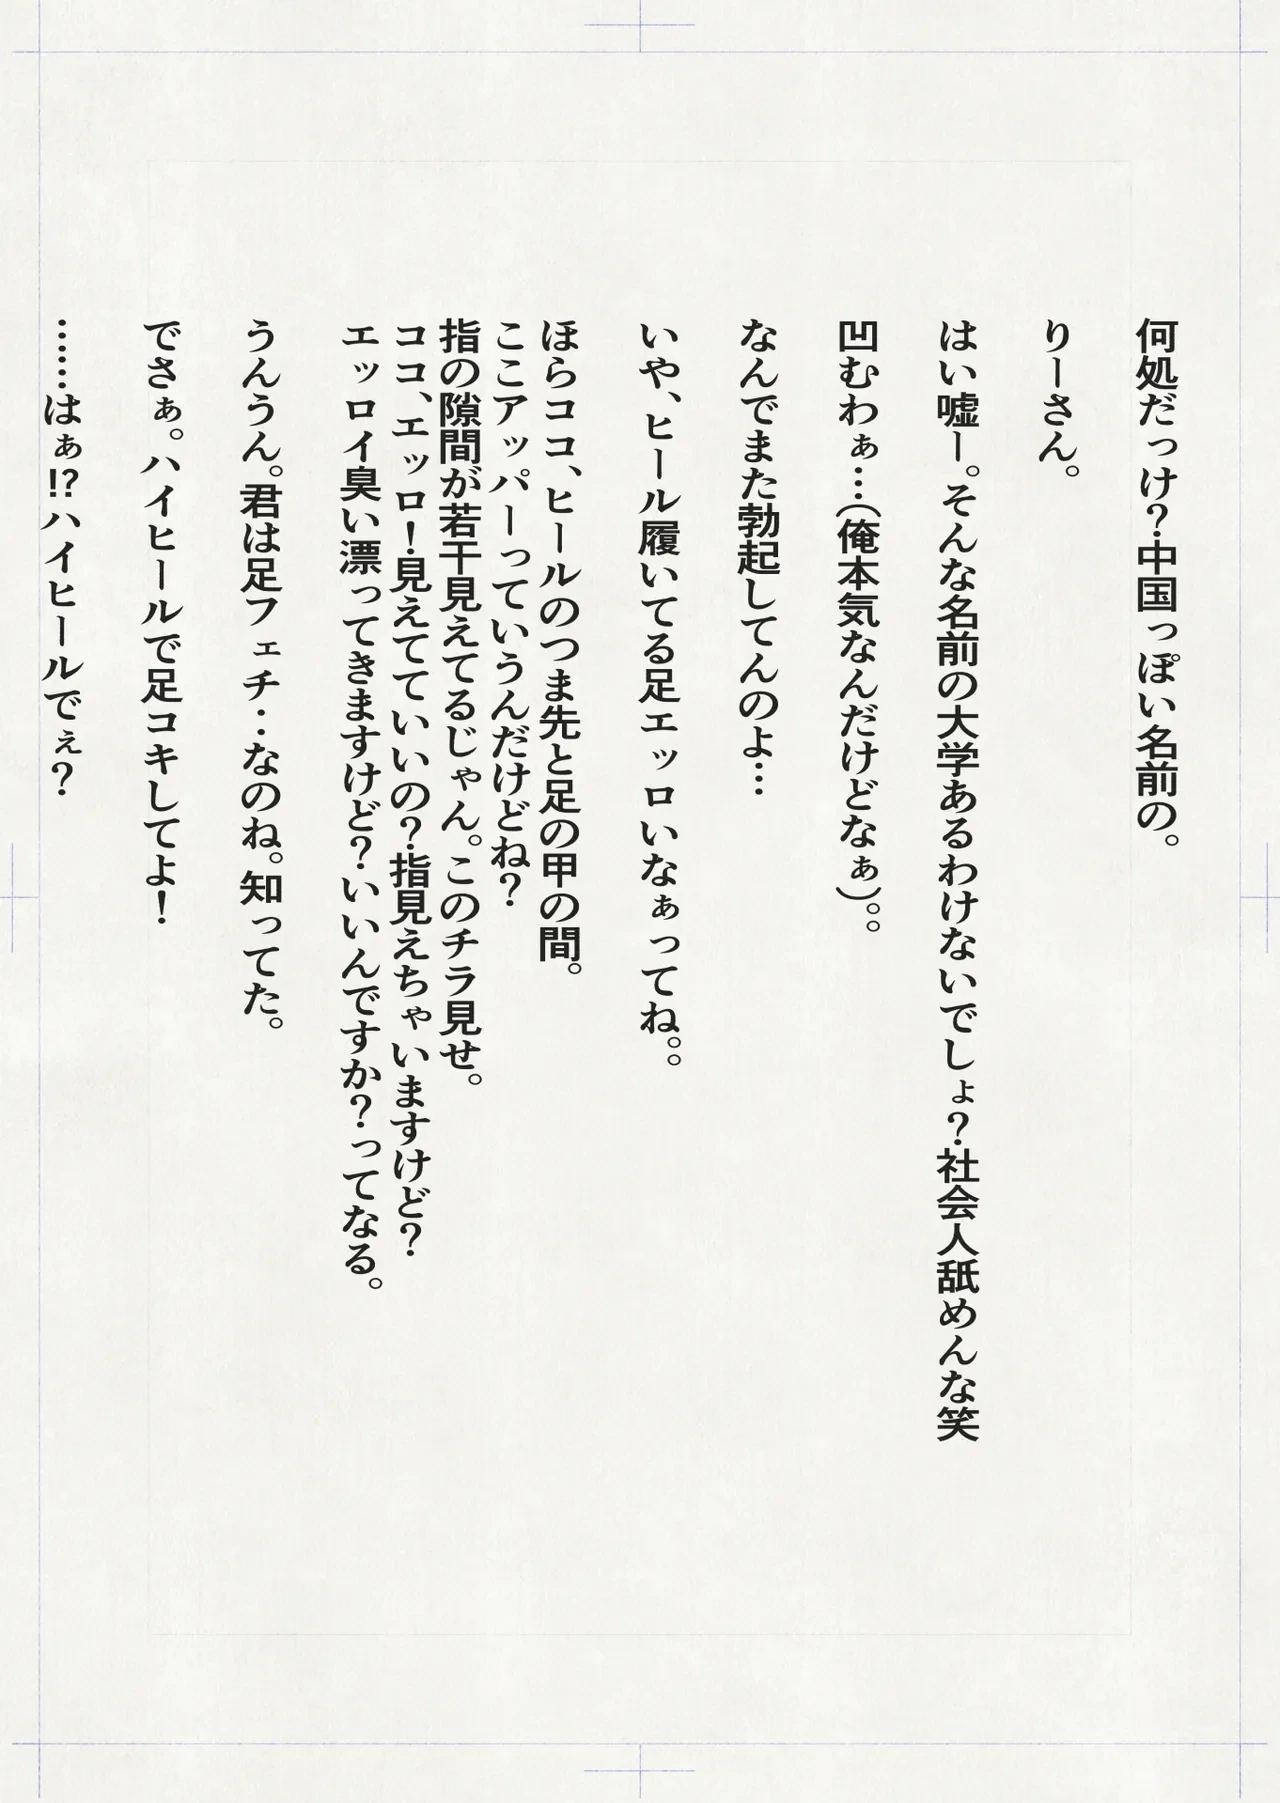 何処だっけ？中国っぽい名前の。
りーさん。
はい嘘ー。そんな名前の大学あるわけないでしょ？社会人舐めんな笑
凹むわぁ…（俺本気なんだけどなぁ）。。
なんでまた勃起してんのよ…
いや、ヒール履いてる足エッロいなぁってね。。
ほらココ、ヒールのつま先と足の甲の間。
ここアッパーっていうんだけどね？
指の隙間が若干見えてるじゃん。このチラ見せ。
ココ、エッロ！見えてていいの？指見えちゃいますけど？
エッロイ臭い漂ってきますけど？いいんですか？ってなる。
うんうん。君は足フェチ‥なのね。知ってた。
でさぁ。ハイヒールで足コキしてよ！
……はぁ!?ハイヒールでぇ？